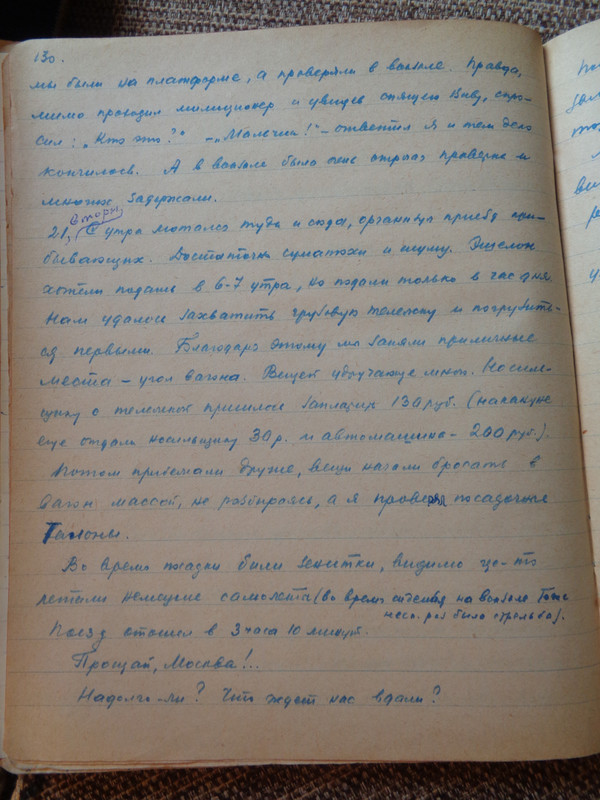 130.
мы были на платформе, а проверяли в вокзале. Правда,
мимо проходил милиционер и увидев спящую Виву, спро-
сил: „Кто это?" – „Мальчик!" – ответил я и тем дело
кончилось. А в вокзале была очень строгая проверка и
многих задержали.
Вторн.
21, С утра мотался туда и сюда, организуя приезд при-
бывающих. Достаточно суматохи и шуму. Эшелон
хотели подать в 6-7 утра, но подали только в час дня.
Нам удалось захватить грузовую тележку и погрузить-
ся первыми. Благодаря этому мы заняли приличные
места – угол вагона. Вещей удручающе много. Носиль-
щику с тележкой пришлось заплатить 130 руб. (накануне
еще отдали носильщику 30 р. и автомашина – 200 руб.).
Потом приезжали другие, вещи начали бросать в
вагон массой, не разбираясь, а я проверял посадочные
талоны.
Во время посадки били зенитки, видимо где-то
летали немецкие самолеты (во время сидения на вокзале тоже
неск. раз была стрельба).
Поезд отошел в 3 часа 10 минут.
Прощай, Москва!..
Надолго-ли? Что ждет нас вдали?